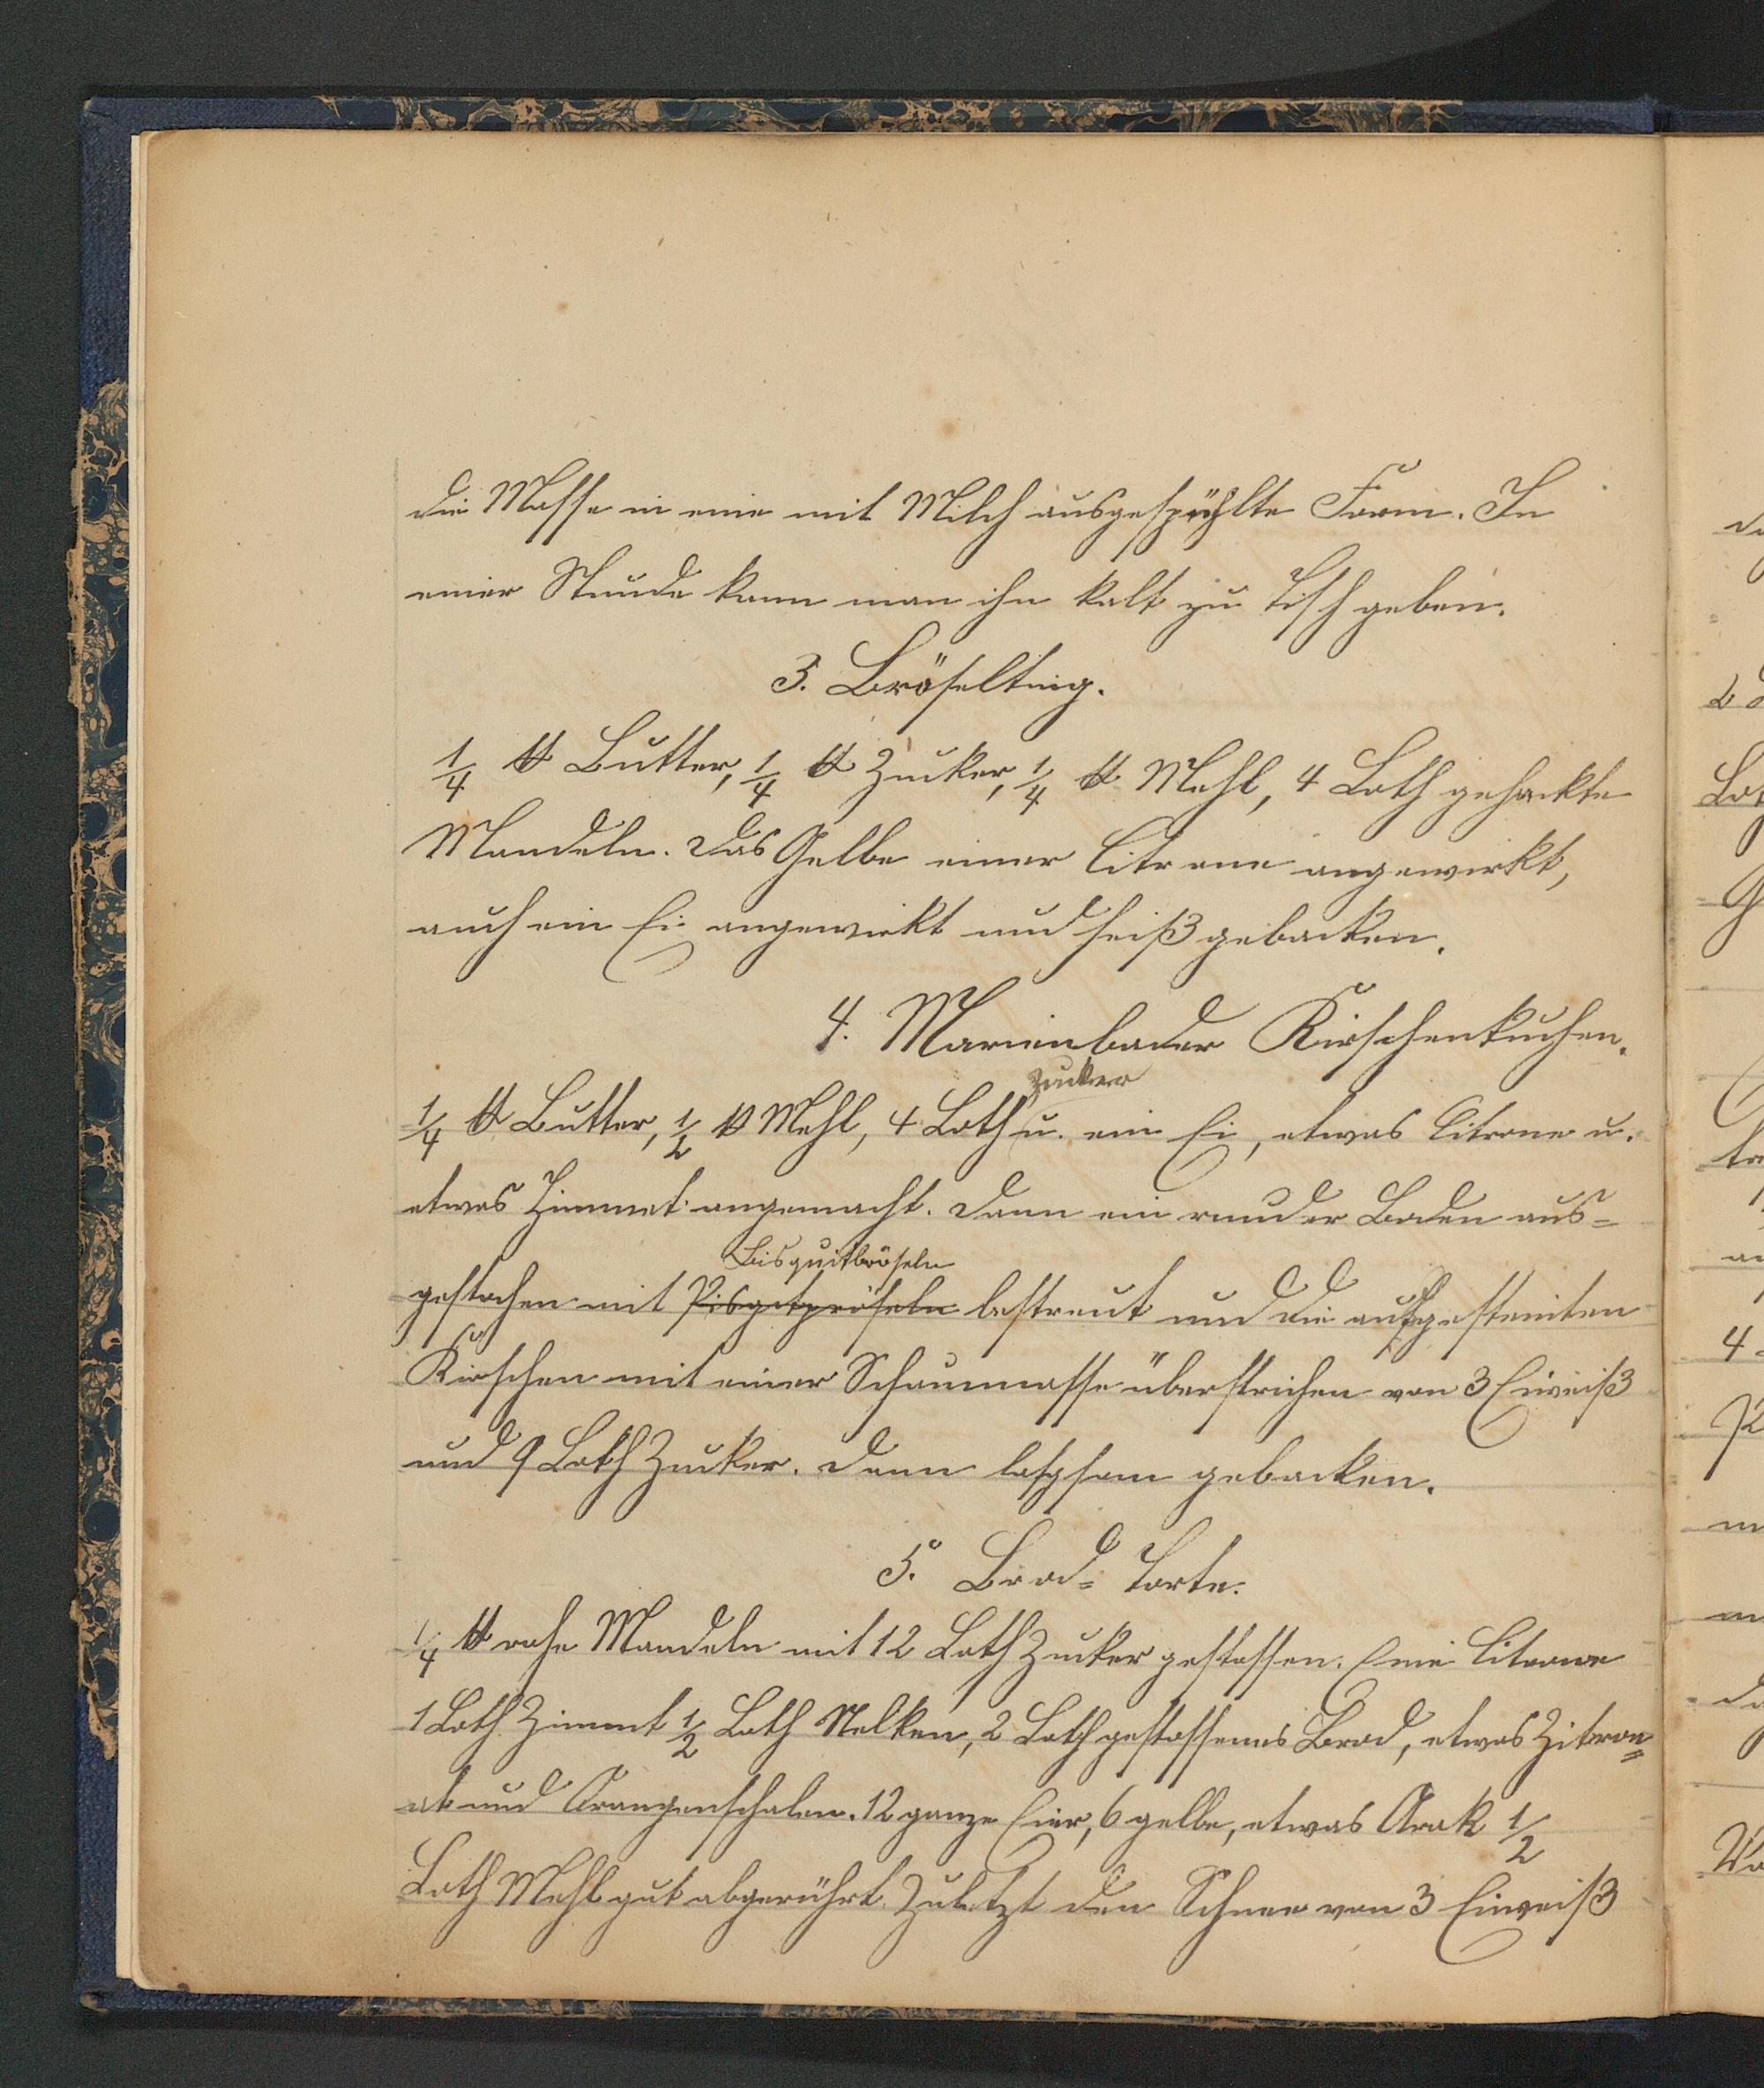 die Masse in eine mit Milch ausgespühlte Form. In
einer Stunde kann man ihn kalt zu Tisch geben.
3. Bröselteig.
1/4 ℔ Butter, 1/4 ℔ Zucker, 1/4 ℔ Mehl, 4 Loth gehackte
Mandeln. Das Gelbe einer Citrone angewirkt,
auch ein Ei angewirkt und heiß gebacken.
4. Marienbader Kirschenkuchen.
Zucker
1/4 ℔ Butter, 1/2 ℔ Mehl, 4 Loth u. ein Ei, etwas Citrone u.
etwas Zimmet angemacht. Dann ein runder Boden aus=
Bisquitbröseln
gestochen mit Pisgotpröseln bestreut und die ausgesteinten
Kirschen mit einer Schaummasse überstrichen von 3 Eiweiß
und 9 Loth Zucker. Dann langsam gebacken.
5. Brod= Torte.
1/4 ℔ rohe Mandeln mit 12 Loth Zucker gestossen. Eine Citrone
1 Loth Zimmt 1/2 Loth Nelken, 2 Loth gestossenes Brod, etwas Zitron=
at und Orangenschalen. 12 ganze Eier, 6 gelbe, etwas Arak 1/2
Loth Mehl gut abgerührt. Zuletzt den Schnee von 3 Eiweiß